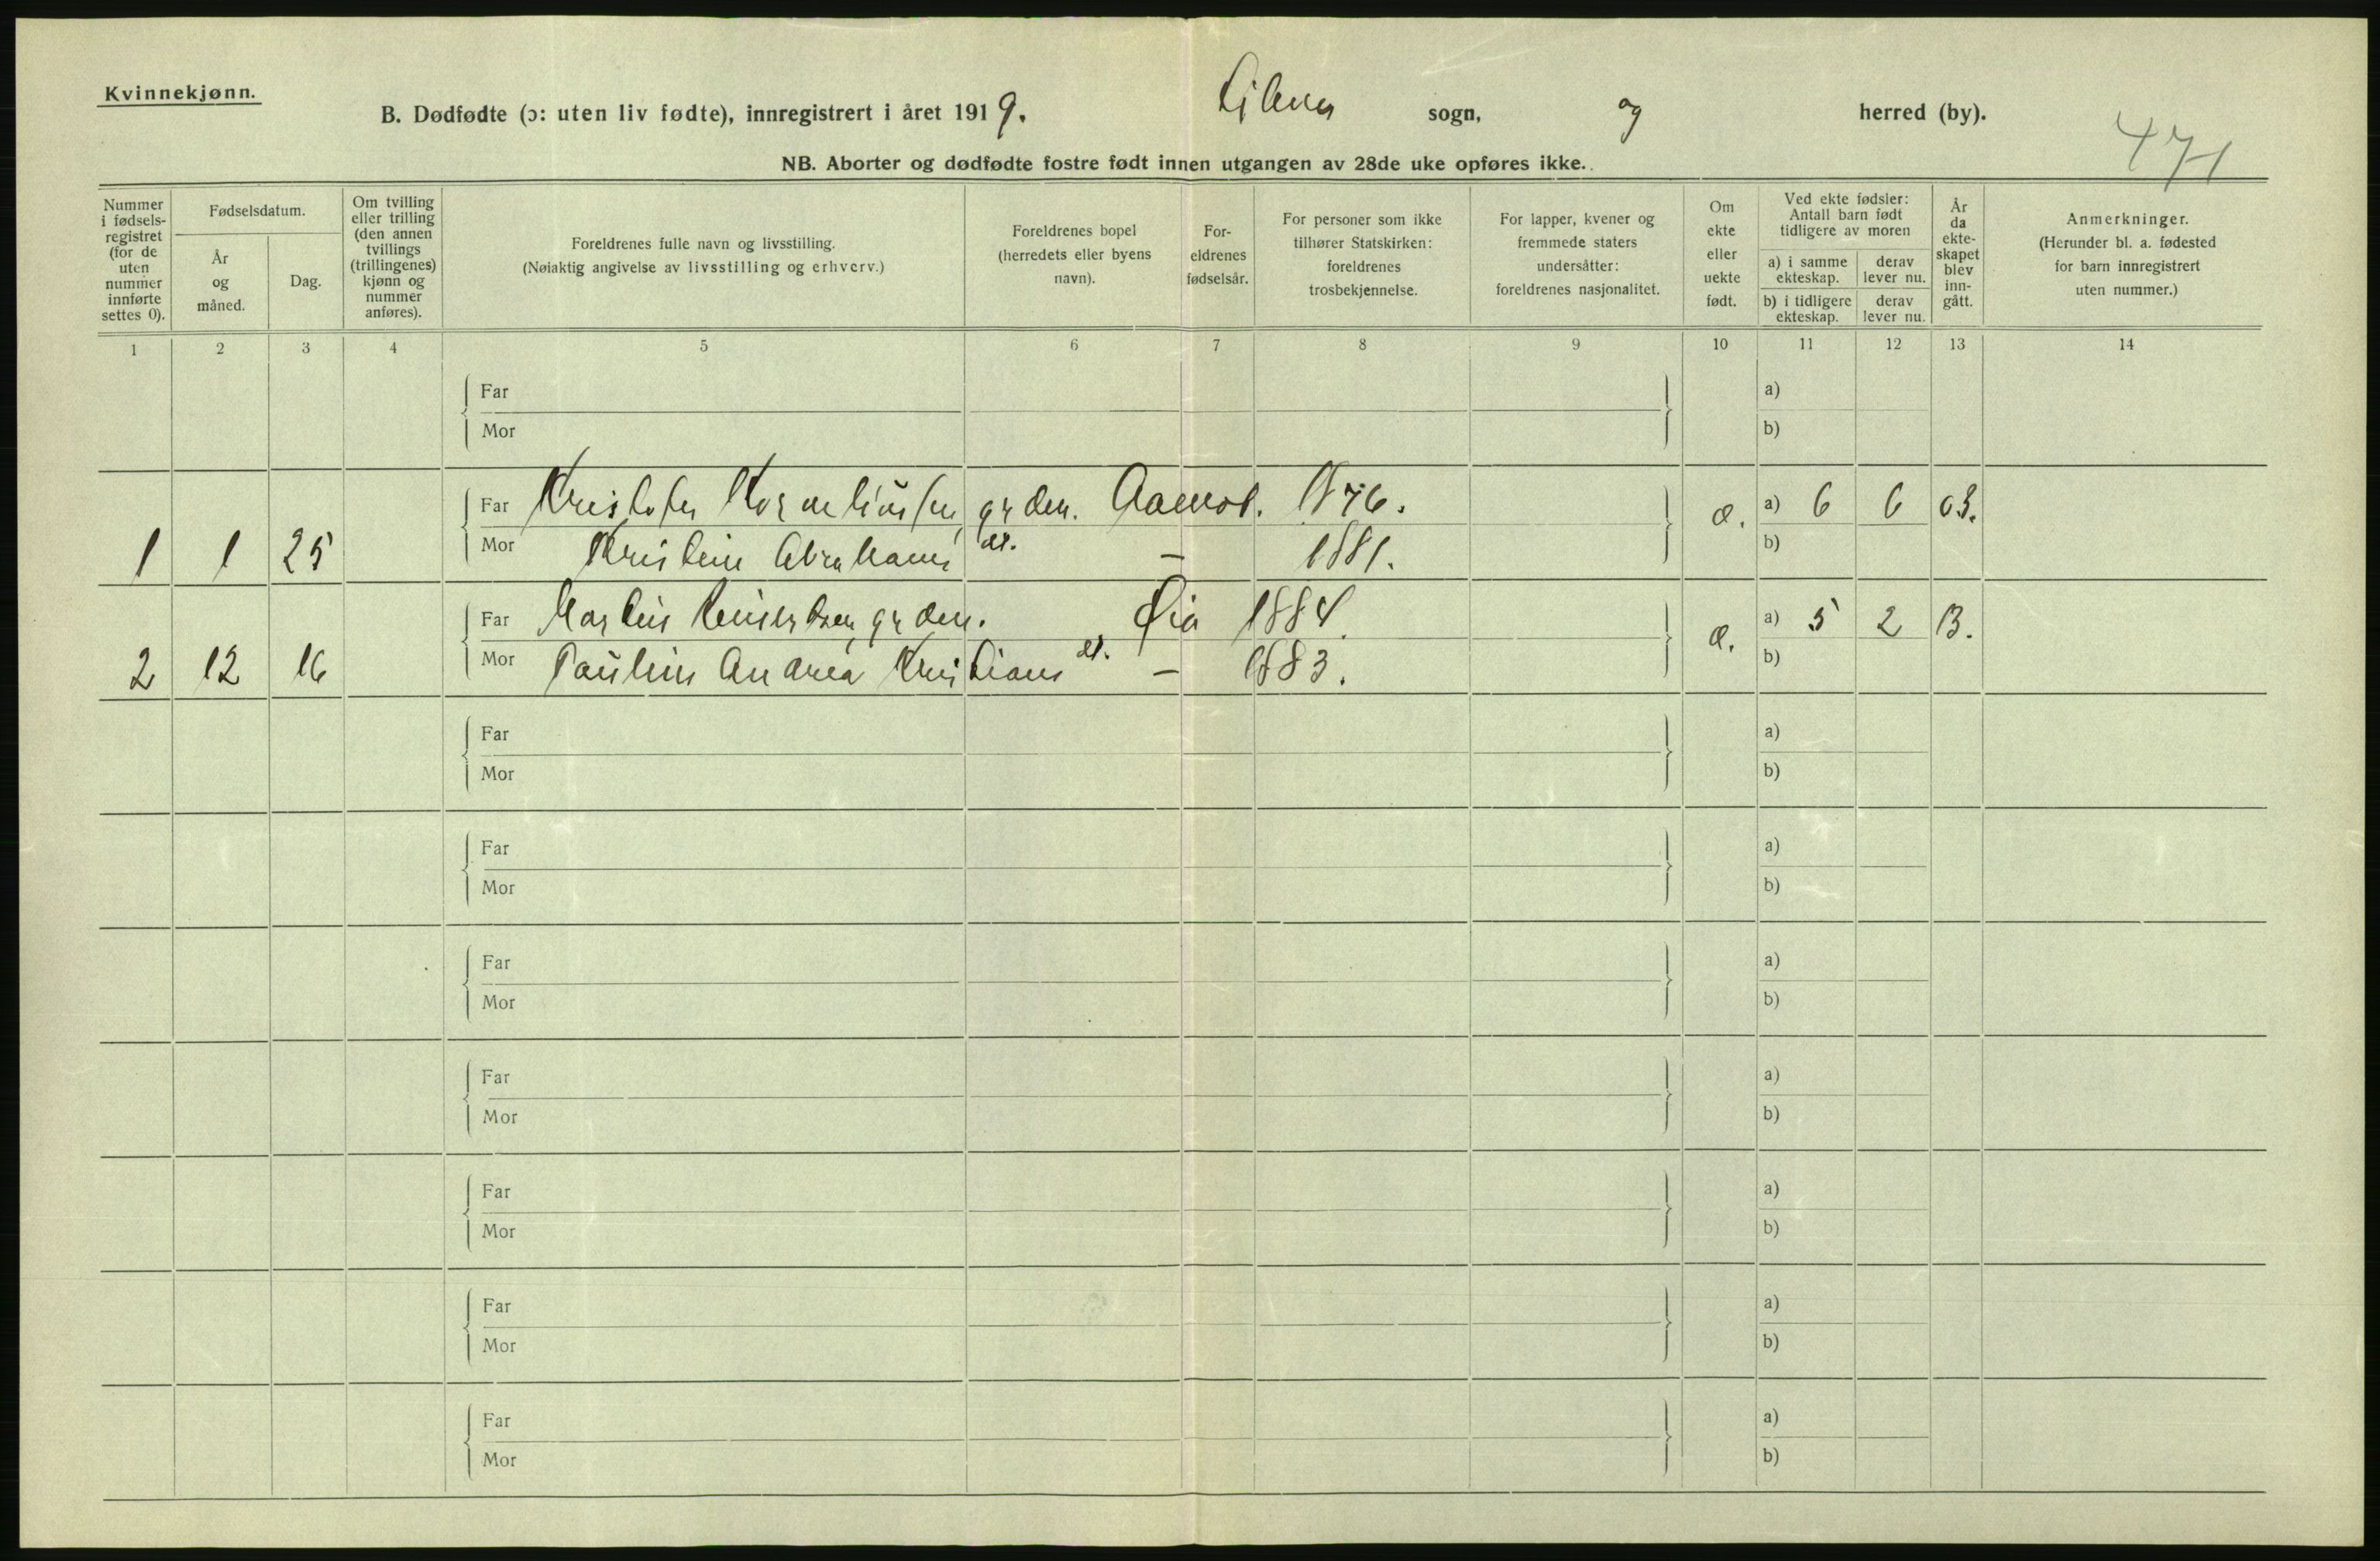 Kvinnekjønn.
B. Dødfødte (ɔ: uten liv fødte), innregistrert i året 1919. sogn, og herred (by).
471
NB. Aborter og dødfødte fostre født innen utgangen av 28de uke opføres ikke.
Nummer i fødsels-registret (for de uten nummer innførte settes 0).
Fødselsdatum.
År og måned.
Dag.
Om tvilling eller trilling (den annen tvillings (trillingenes) kjønn og nummer anføres).
Foreldrenes fulle navn og livsstilling.
(Nøiaktig angivelse av livsstilling og erhverv.)
Foreldrenes bopel (herredets eller byens navn).
For-eldrenes fødselsår.
For personer som ikke tilhører Statskirken: foreldrenes trosbekjennelse.
For lapper, kvener og fremmede staters undersåtter: foreldrenes nasjonalitet.
Om ekte eller uekte født.
Ved ekte fødsler: Antall barn født tidligere av moren
a) i samme ekteskap.
derav lever nu.
b) i tidligere ekteskap.
derav lever nu.
År da ekte-skapet blev inn-gått.
Anmerkninger.
(Herunder bl. a. fødested for barn innregistrert uten nummer.)
1 2 3 4 5 6 7 8 9 10 11 12 13 14
Far a)
Mor b)
Far Kristofer Korneliussen, grden. Aamot. 1876. a) 6 6 03.
1 1 25 Mor Kristine Abrahams dt. — 1881. b)
Far grden. Øia 1884. a) 5 2 13.
2 12 16 Mor Pauline Andrea Kristians dt. — 1883. b)
Far a)
Mor b)
Far a)
Mor b)
Far a)
Mor b)
Far a)
Mor b)
Far a)
Mor b)
Far a)
Mor b)
Far a)
Mor b)